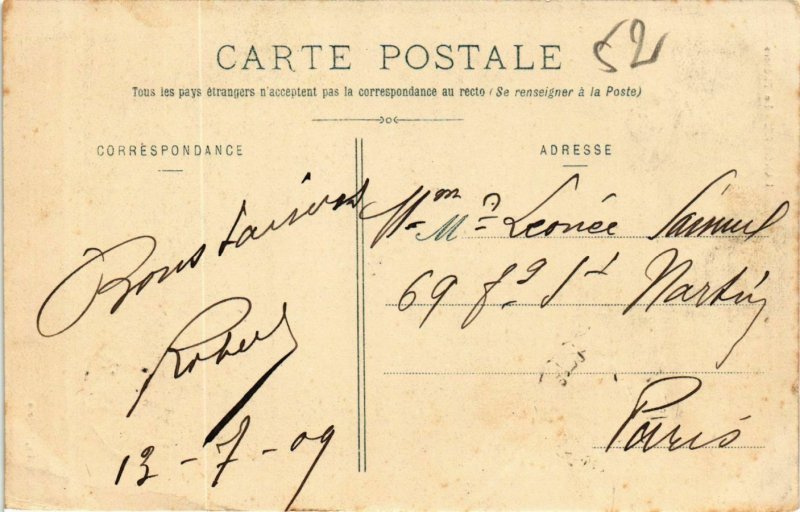 CARTE POSTALE
52
Tous les pays étrangers n'acceptent pas la correspondance au recto (Se renseigner à la Poste)
CORRESPONDANCE
Bons baisers
Robert
13-7-09
ADRESSE
Mme Léonée Samuel
69 fg St Martin
Paris